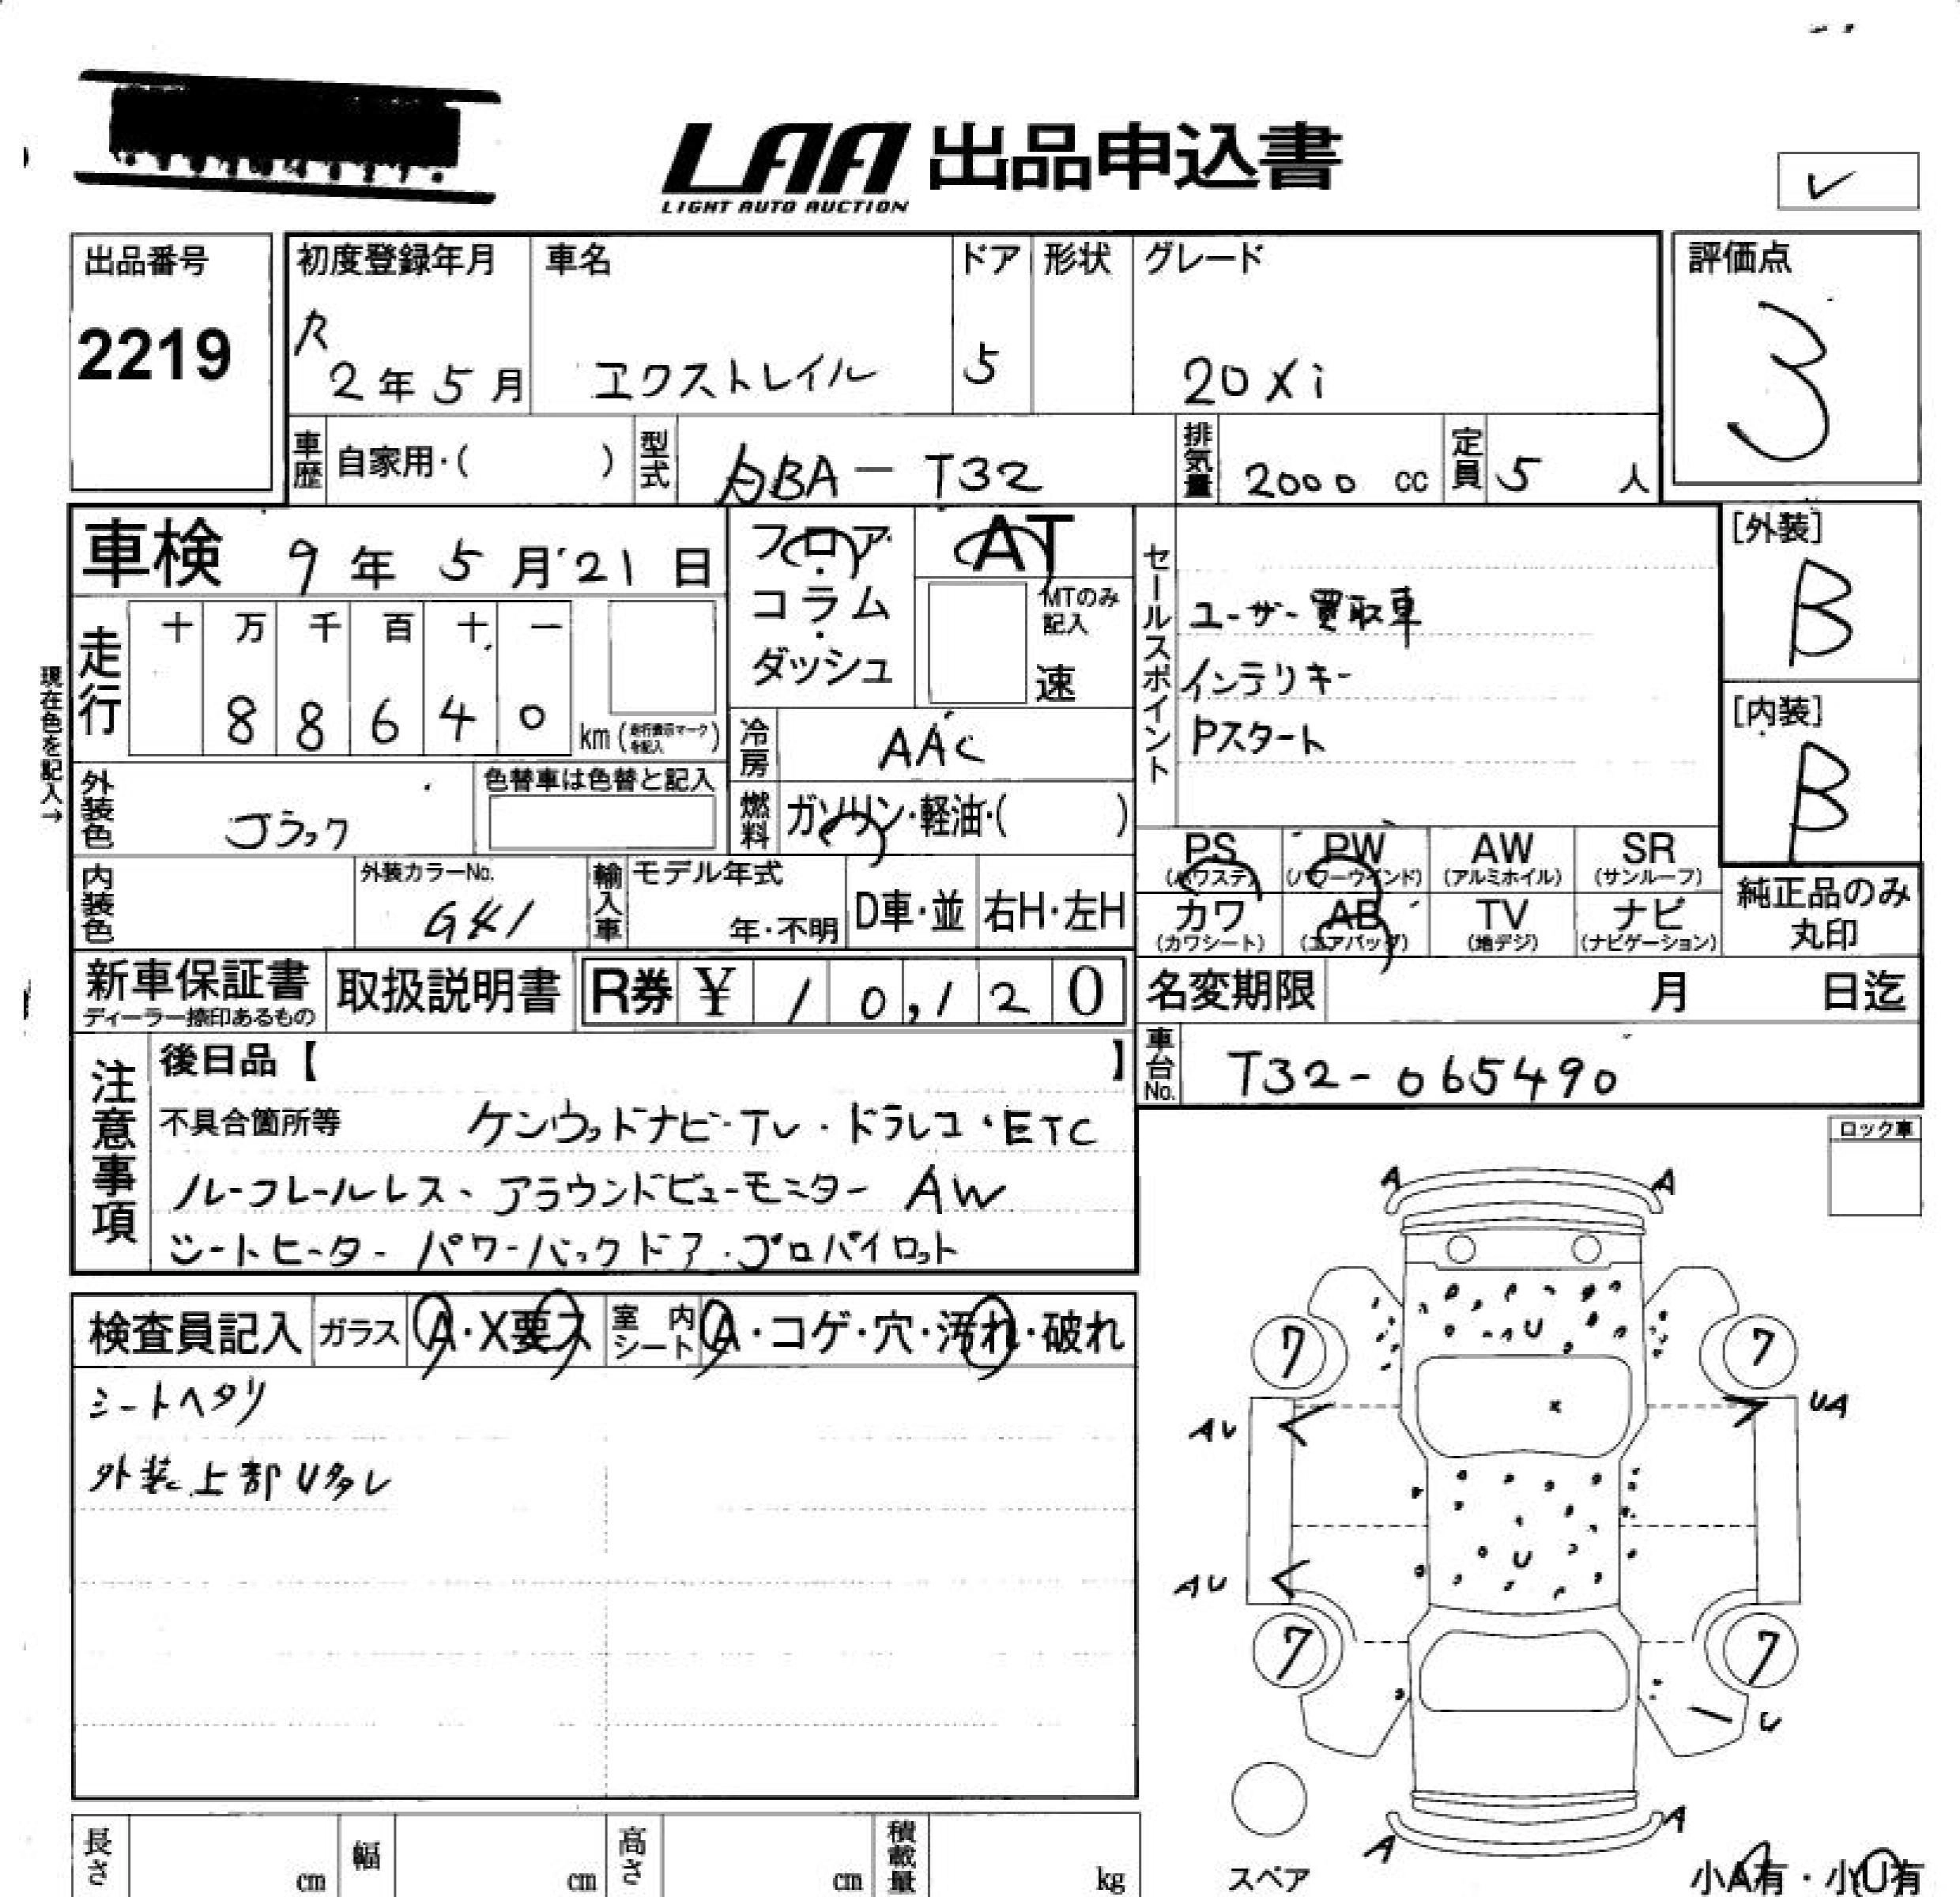 LAA 出品申込書
LIGHT AUTO AUCTION
出品番号
2219
初度登録年月
R
2年5月
車名
エクストレイル
ドア
5
形状
グレード
20Xi
評価点
3
車歴
自家用・( )
型式
DBA－T32
排気量
2000 cc
定員
5 人
車検 9年5月21日
走行
十 万 千 百 十 一
8 8 6 4 0 km
現在色を記入→
フロア
・
コラム
・
ダッシュ
AT
MTのみ
記入
速
冷房
AAC
燃料
ガソリン・軽油・( )
セールスポイント
ユーザー買取車
インテリキー
Pスタート
[外装]
B
[内装]
B
外装色
ブラック
色替車は色替と記入
内装色
外装カラーNo.
G41
輸入車
モデル年式
年・不明
D車・並
右H・左H
PS
(パワステ)
PW
(パワーウインド)
AW
(アルミホイル)
SR
(サンルーフ)
カワ
(カワシート)
AB
(エアバッグ)
TV
(地デジ)
ナビ
(ナビゲーション)
純正品のみ
丸印
新車保証書
ディーラー捺印あるもの
取扱説明書
R券 ¥ 10,120
名変期限 月 日迄
車台No.
T32-065490
注意事項
後日品【 】
不具合箇所等 ケンウッドナビ・TV・ドラレコ・ETC
ルーフレールレス、アラウンドビューモニター AW
シートヒーター パワーバックドア・プロパイロット
ロック車
検査員記入
ガラス
A・X要ス
室内
シート
A・コゲ・穴・汚れ・破れ
シートヘタリ
外装上部U多シ
A A
U
7 7
x
AU UA
U
AU
7 7
U
A A
スペア
小A有・小U有
長さ cm
幅 cm
高さ cm
積載量 kg